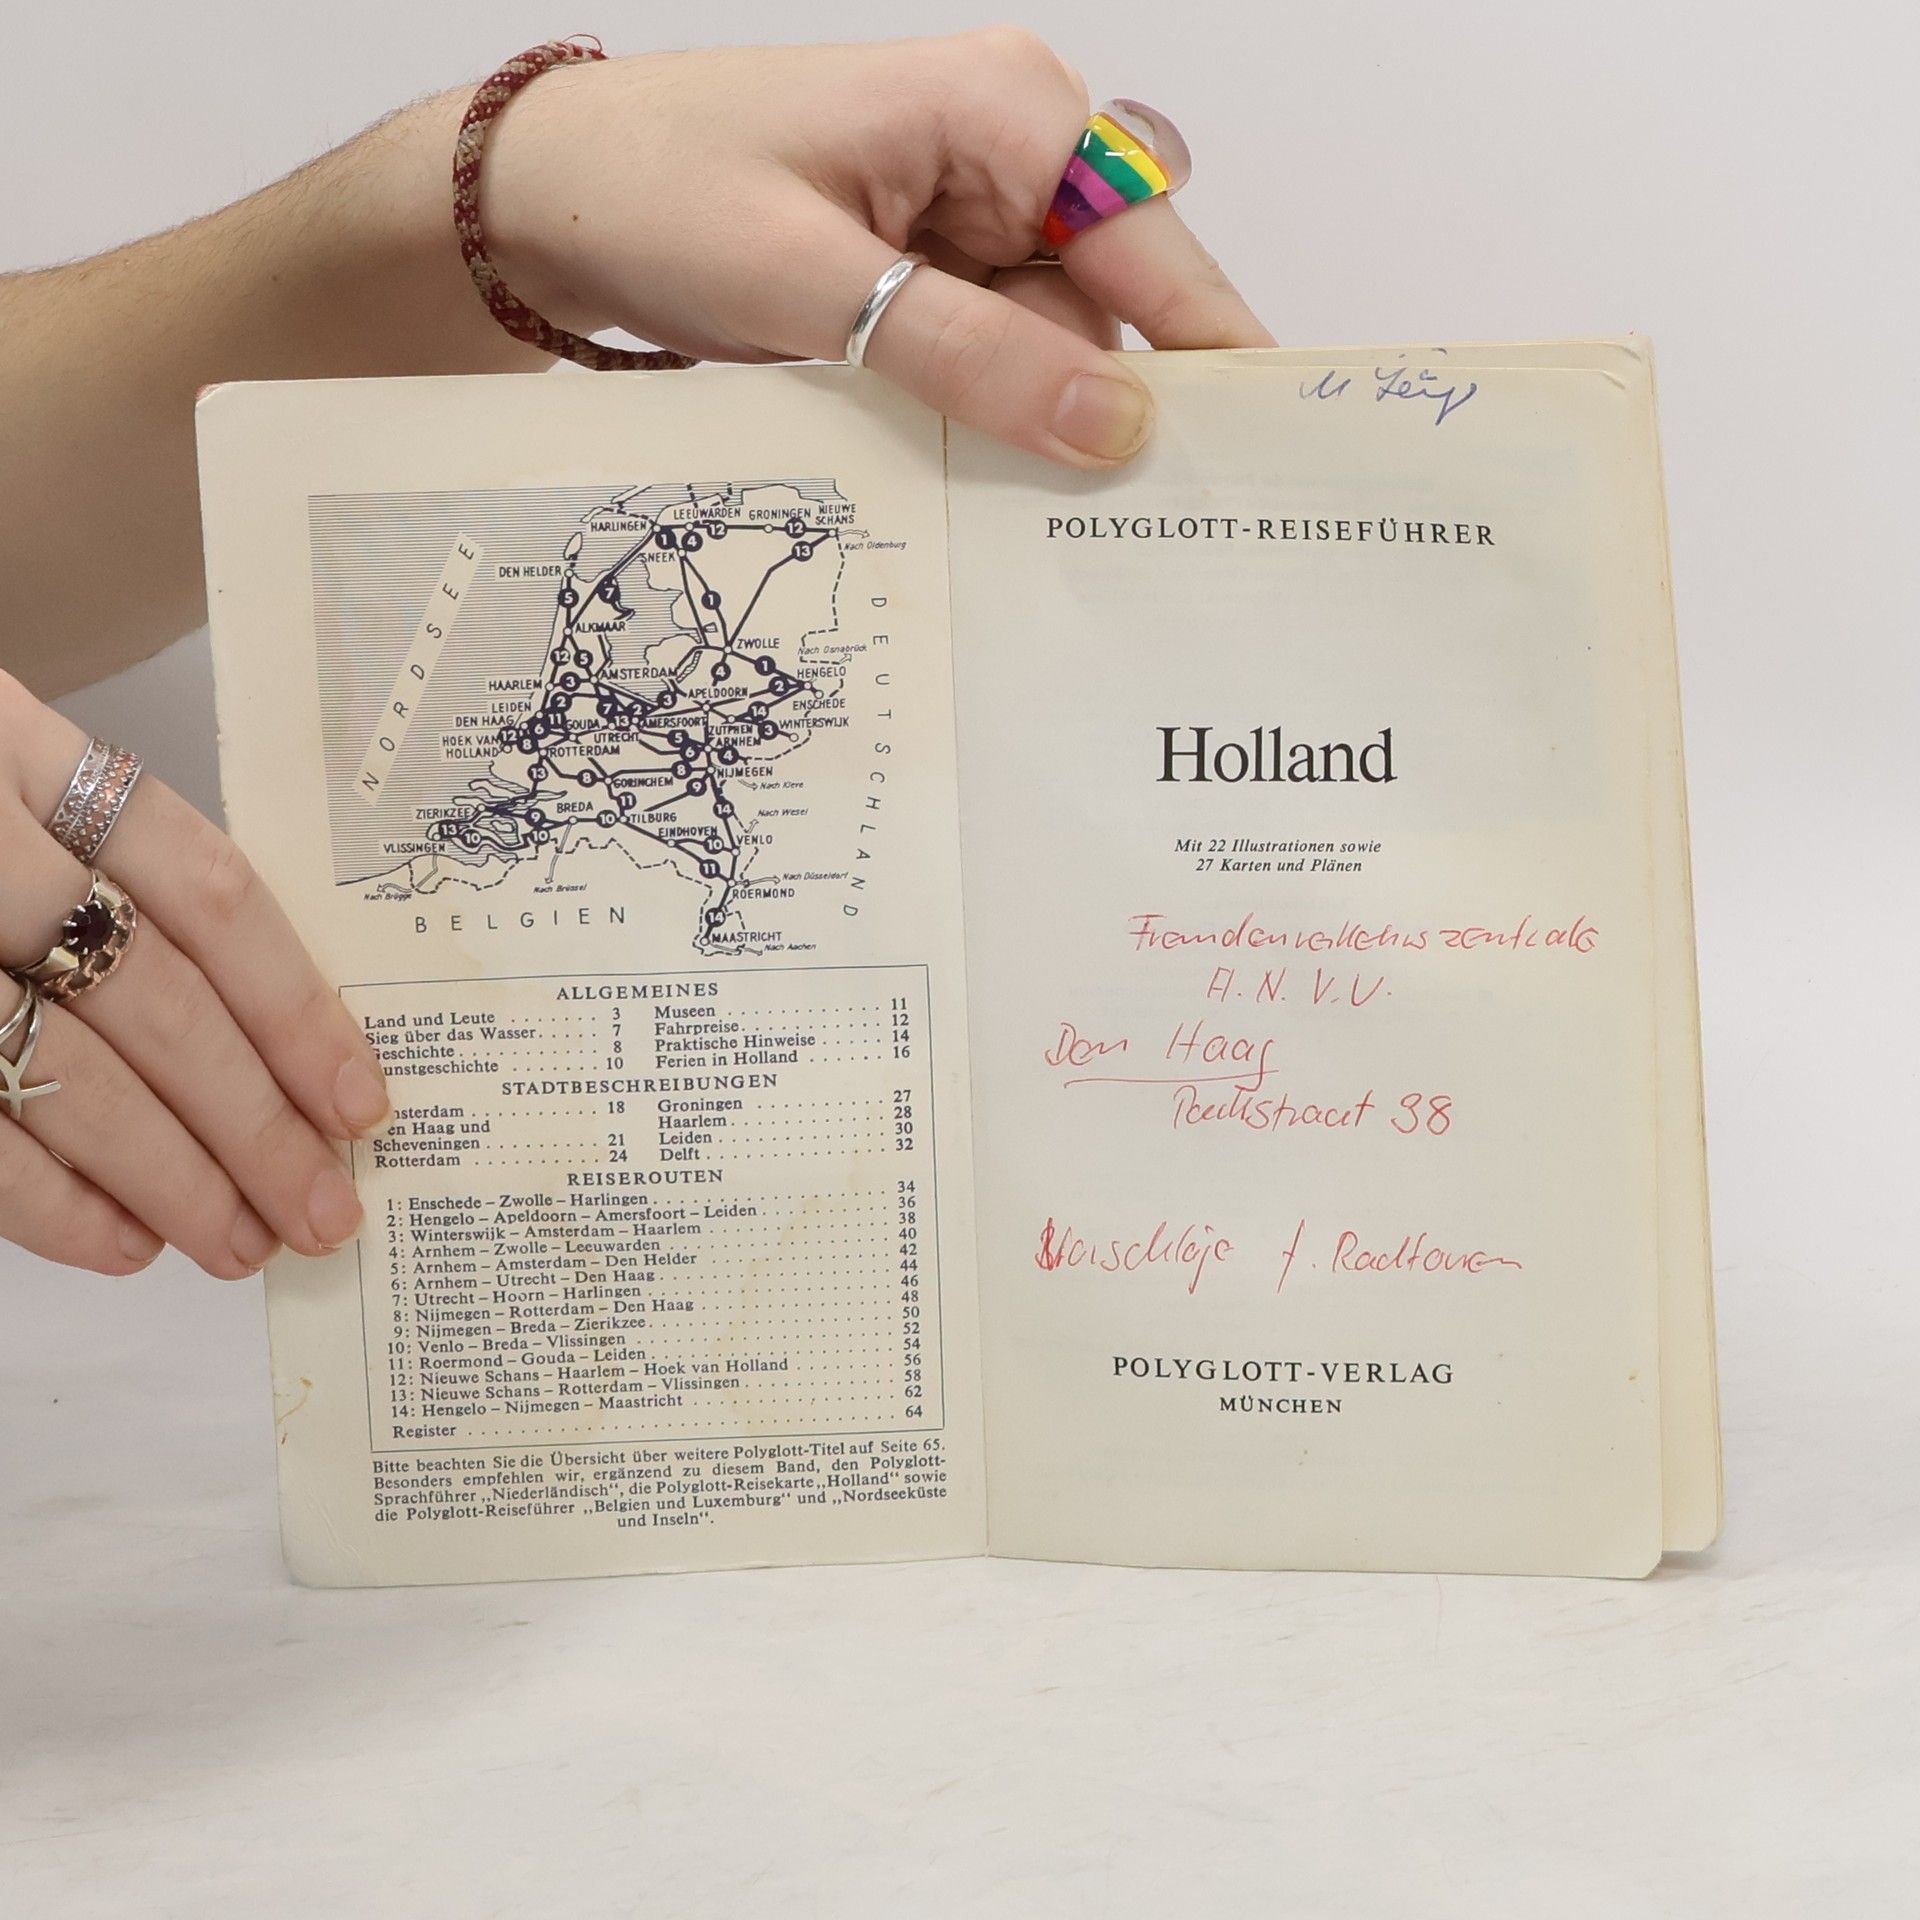 NORDSEE
HARLINGEN
LEEUWARDEN
GRONINGEN
NIEUWE
SCHANS
Nach Oldenburg
SNEEK
DEN HELDER
ALKMAAR
ZWOLLE
Nach Osnabrück
HENGELO
AMSTERDAM
HAARLEM
APELDOORN
ENSCHEDE
LEIDEN
DEN HAAG
GOUDA
AMERSFOORT
ZUTPHEN
WINTERSWIJK
HOEK VAN
HOLLAND
UTRECHT
ARNHEM
ROTTERDAM
GORINCHEM
NIJMEGEN
Nach Kleve
ZIERIKZEE
BREDA
TILBURG
Nach Wesel
EINDHOVEN
VENLO
VLISSINGEN
Nach Düsseldorf
Nach Brügge
Nach Brüssel
ROERMOND
BELGIEN
MAASTRICHT
Nach Aachen
DEUTSCHLAND
ALLGEMEINES
Land und Leute . . . . . . . 3
Sieg über das Wasser . . . . . 7
Geschichte . . . . . . . . . . 8
unstgeschichte . . . . . . . 10
Museen . . . . . . . . . . . . 11
Fahrpreise . . . . . . . . . . . 12
Praktische Hinweise . . . . . 14
Ferien in Holland . . . . . . 16
STADTBESCHREIBUNGEN
nsterdam . . . . . . . . . . 18
en Haag und
Scheveningen . . . . . . . . . 21
Rotterdam . . . . . . . . . . 24
Groningen . . . . . . . . . . 27
Haarlem . . . . . . . . . . . . 28
Leiden . . . . . . . . . . . . . 30
Delft . . . . . . . . . . . . . . 32
REISEROUTEN
1: Enschede – Zwolle – Harlingen . . . . . . . . . . . . 34
2: Hengelo – Apeldoorn – Amersfoort – Leiden . . . . . . . . 36
3: Winterswijk – Amsterdam – Haarlem . . . . . . . . . . . 38
4: Arnhem – Zwolle – Leeuwarden . . . . . . . . . . . . . 40
5: Arnhem – Amsterdam – Den Helder . . . . . . . . . . . . 42
6: Arnhem – Utrecht – Den Haag . . . . . . . . . . . . . . 44
7: Utrecht – Hoorn – Harlingen . . . . . . . . . . . . . . 46
8: Nijmegen – Rotterdam – Den Haag . . . . . . . . . . . . 48
9: Nijmegen – Breda – Zierikzee . . . . . . . . . . . . . . 50
10: Venlo – Breda – Vlissingen . . . . . . . . . . . . . . . 52
11: Roermond – Gouda – Leiden . . . . . . . . . . . . . . . 54
12: Nieuwe Schans – Haarlem – Hoek van Holland . . . . . . . 56
13: Nieuwe Schans – Rotterdam – Vlissingen . . . . . . . . . 58
14: Hengelo – Nijmegen – Maastricht . . . . . . . . . . . . 62
Register . . . . . . . . . . . . . . . . . . . . . . . . . 64
Bitte beachten Sie die Übersicht über weitere Polyglott-Titel auf Seite 65.
Besonders empfehlen wir, ergänzend zu diesem Band, den Polyglott-
Sprachführer „Niederländisch“, die Polyglott-Reisekarte „Holland“ sowie
die Polyglott-Reiseführer „Belgien und Luxemburg“ und „Nordseeküste
und Inseln“.
POLYGLOTT-REISEFÜHRER
Holland
Mit 22 Illustrationen sowie
27 Karten und Plänen
Fremdenverkehrszentrale
A.N.V.V.
Den Haag
Parkstraat 38
Vorschläge f. Radtouren
POLYGLOTT-VERLAG
MÜNCHEN